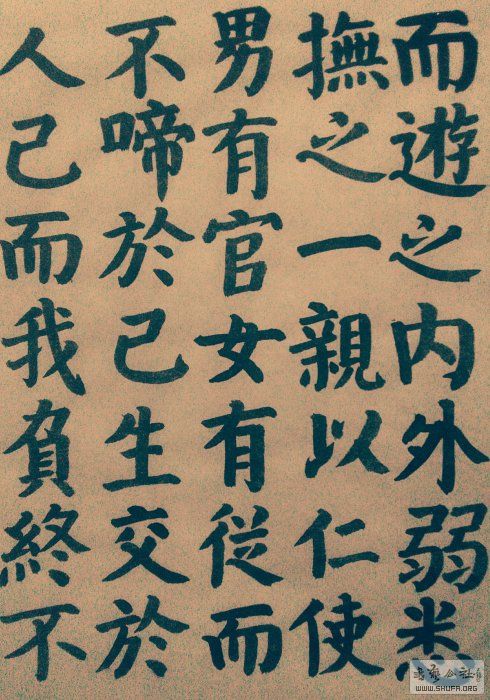 而遊之内外弱悉
撫之一親以仁使
男有官女有從而
不啼於己生交於
人己而我負終不
WWW.SHUFA.ORG